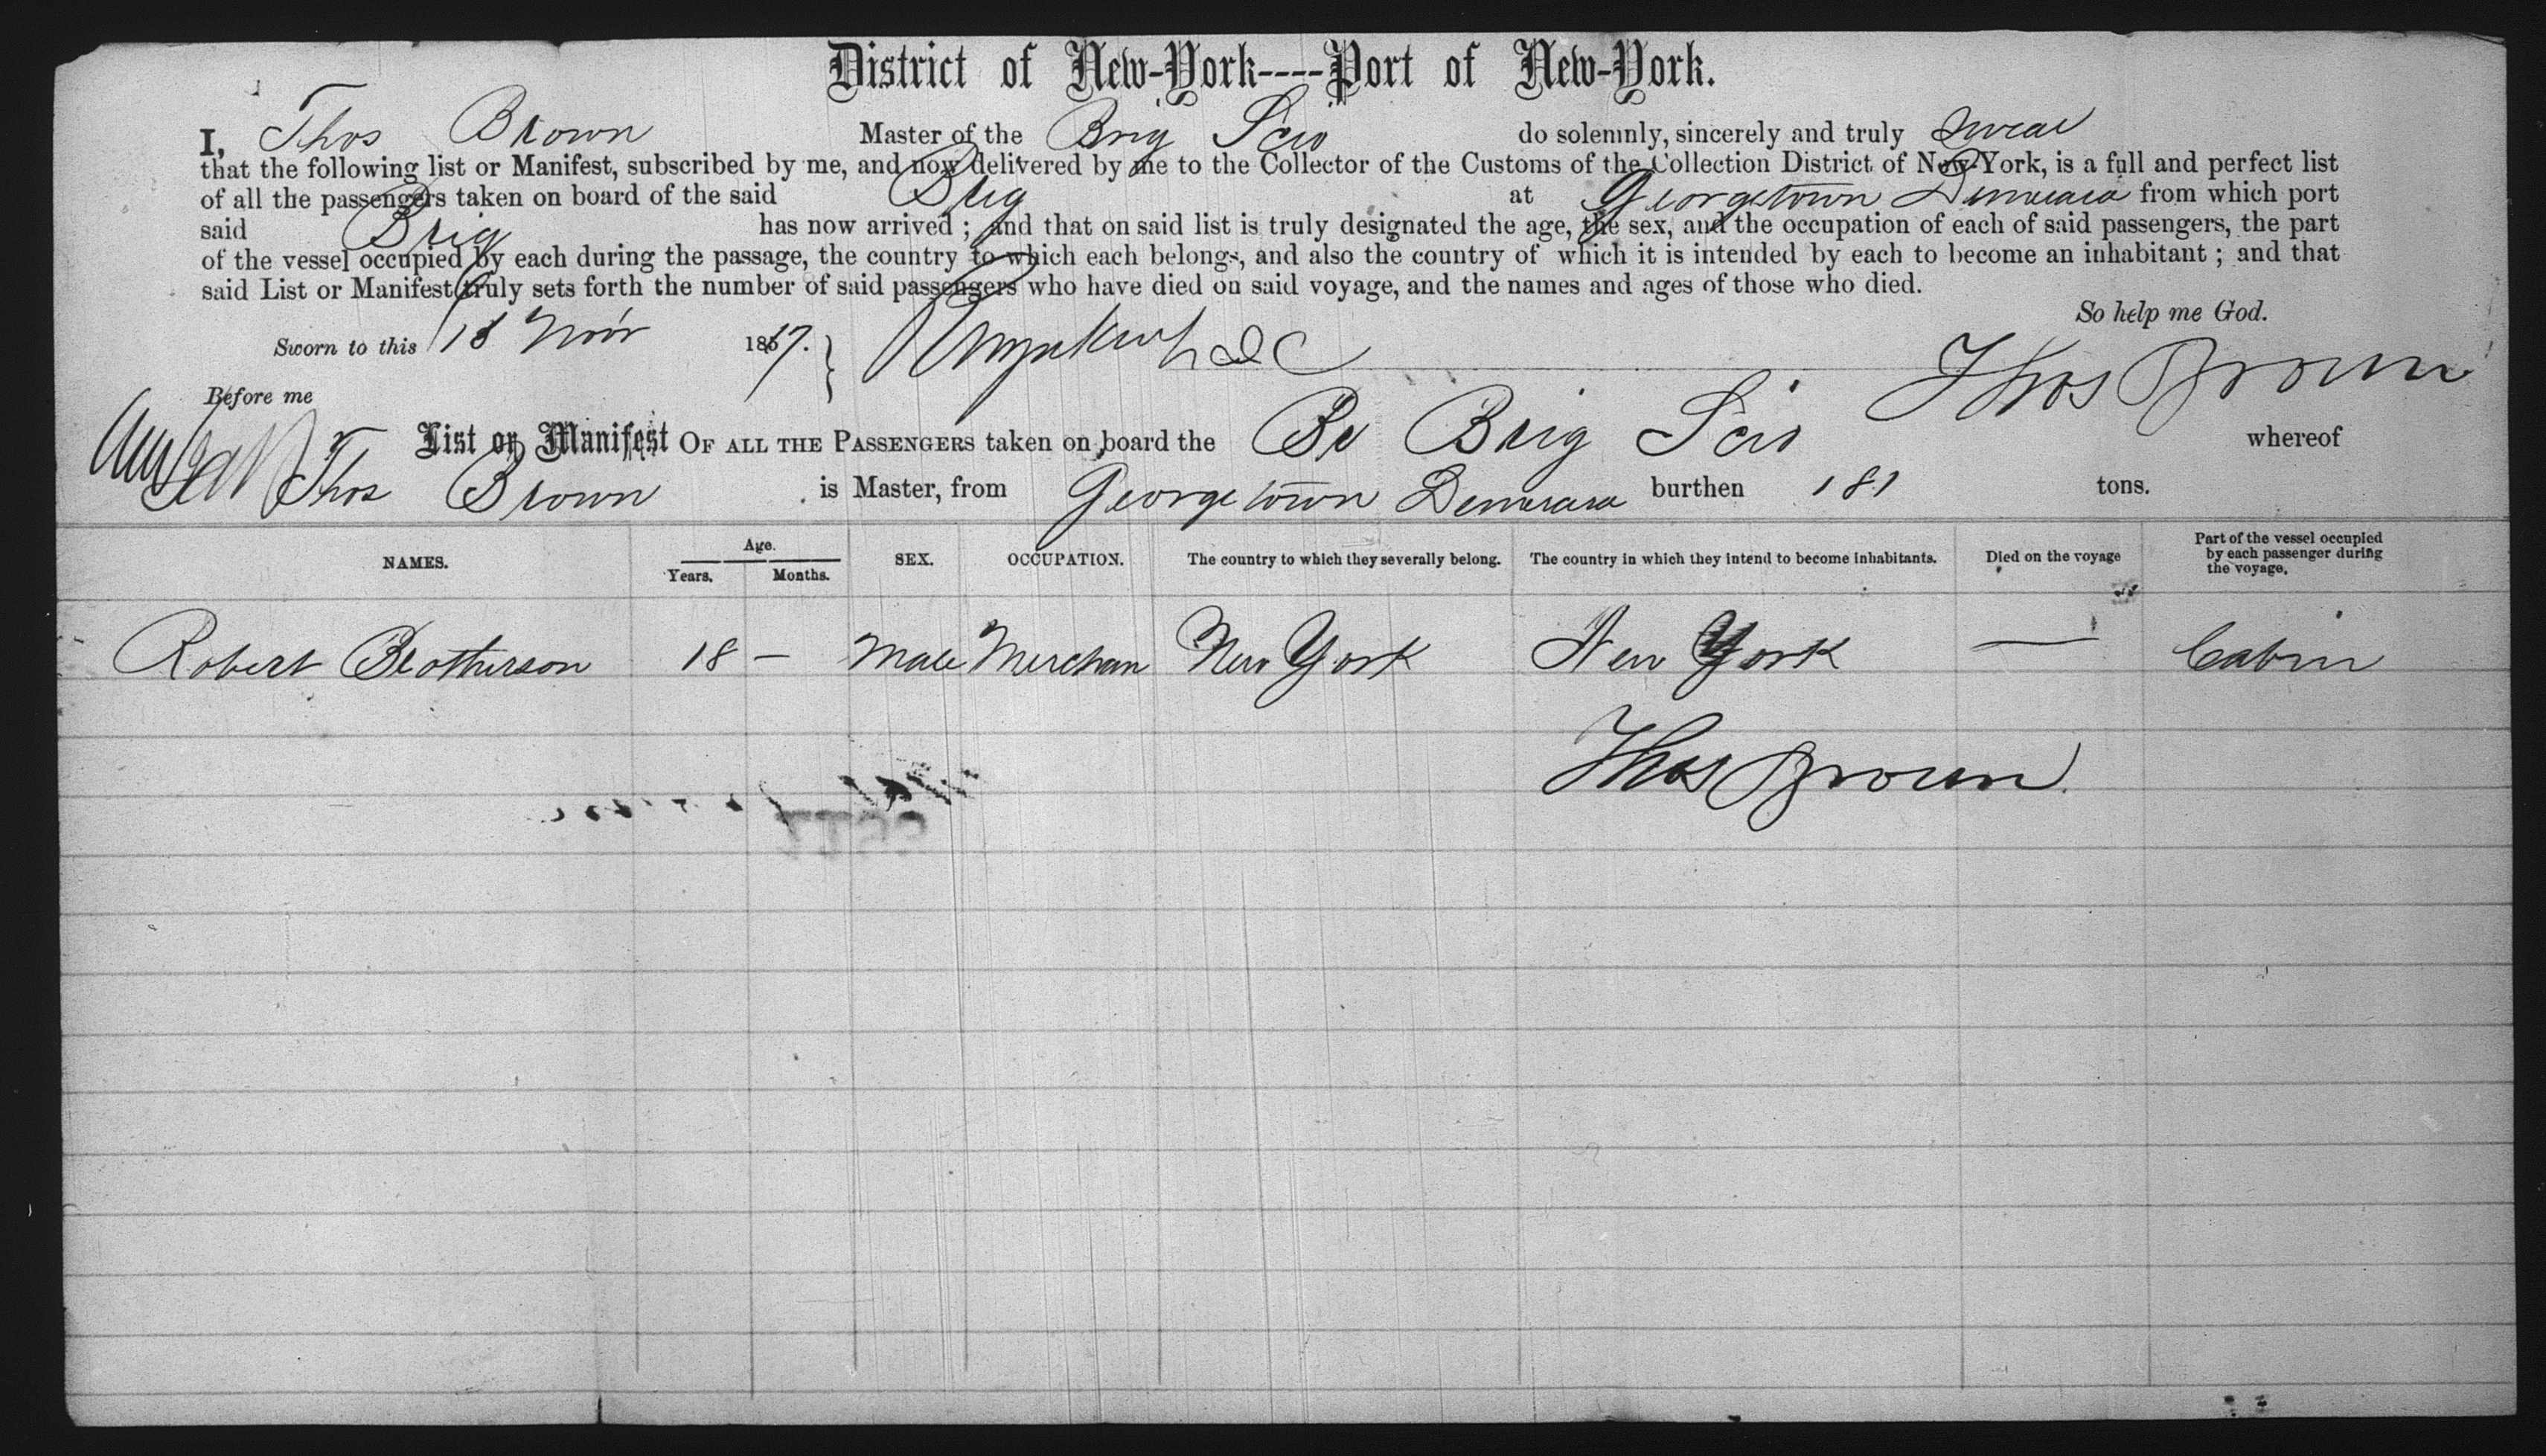 District of New-York----Port of New-York.
I, Thos Brown Master of the Brig Scio do solemnly, sincerely and truly swear
that the following list or Manifest, subscribed by me, and now delivered by me to the Collector of the Customs of the Collection District of New-York, is a full and perfect list
of all the passengers taken on board of the said Brig at Georgetown Demerara from which port
said Brig has now arrived ; and that on said list is truly designated the age, the sex, and the occupation of each of said passengers, the part
of the vessel occupied by each during the passage, the country to which each belongs, and also the country of which it is intended by each to become an inhabitant ; and that
said List or Manifest truly sets forth the number of said passengers who have died on said voyage, and the names and ages of those who died.
So help me God.
Sworn to this 18 Novr 1867. Thos Brown
Before me
List or Manifest OF ALL THE PASSENGERS taken on board the Br Brig Scio whereof
Thos Brown is Master, from Georgetown Demerara burthen 181 tons.
NAMES. Age. Years. Months. SEX. OCCUPATION. The country to which they severally belong. The country in which they intend to become inhabitants. Died on the voyage Part of the vessel occupied by each passenger during the voyage.
Robert Brotherson 18 — Male Merchan New York New York — Cabin
Thos Brown